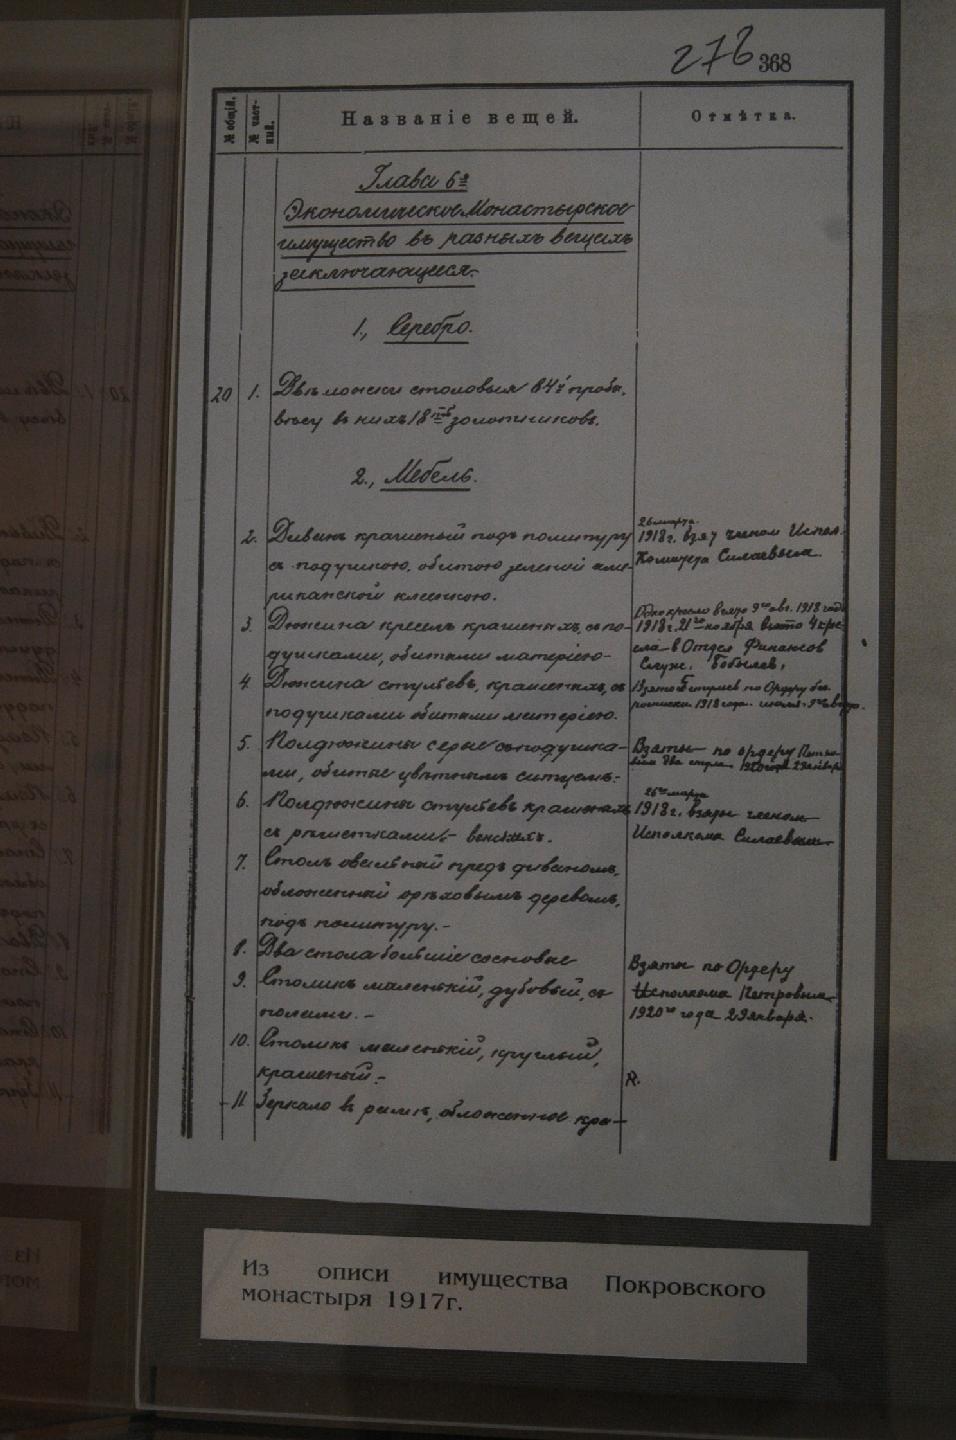 276 368
№ общій.
№ част-
ный.
Названіе вещей.
Отмѣтка.
Глава 6я
Экономическое Монастырское
имущество въ разныхъ вещахъ
заключающееся.
1., Серебро.
20 1. Двѣ ложки столовыя 84й пробы,
вѣсу въ нихъ 18 золотниковъ.
2., Мебель.
2. Диванъ крашеный подъ политуру
съ подушкою, обитою зеленой аме-
риканской клеенкою.
26 марта
1918 г. взят членом Испол-
Комитета Силаевым.
3. Дюжина креселъ крашеныхъ, съ по-
душками, обитыми матеріею
Одно кресло взято 9го авг. 1918 года
1918 г. 21го ноября взято 4 крес-
ела в Отдел Финансов
Служ. Бобылев,
4. Дюжина стульевъ, крашеныхъ, съ
подушками обитыми матеріею.
Взято 5 стульев по Ордеру без
росписки 1918 года
5. Полдюжины серые съ подушка-
ми, обитые цвѣтнымъ ситцемъ.
Взяты по ордеру Петро-
вым два стула 1920 года 29 января
6. Полдюжины стульевъ крашеныхъ
съ рѣшетками - венскихъ.
26го марта
1918 г. взяты членом
Исполкома Силаевым
7. Столъ овальный предъ диваномъ,
обложенный орѣховымъ деревомъ,
подъ политуру.-
8. Два стола большіе сосновые
9. Столикъ маленькій, дубовый, съ
полами.-
Взяты по Ордеру
Исполкома Петровым
1920го года 29 января.
10. Столикъ маленькій, круглый,
крашеный.-
11. Зеркало въ рамѣ, обложенное кра-
Из описи имущества Покровского
монастыря 1917г.